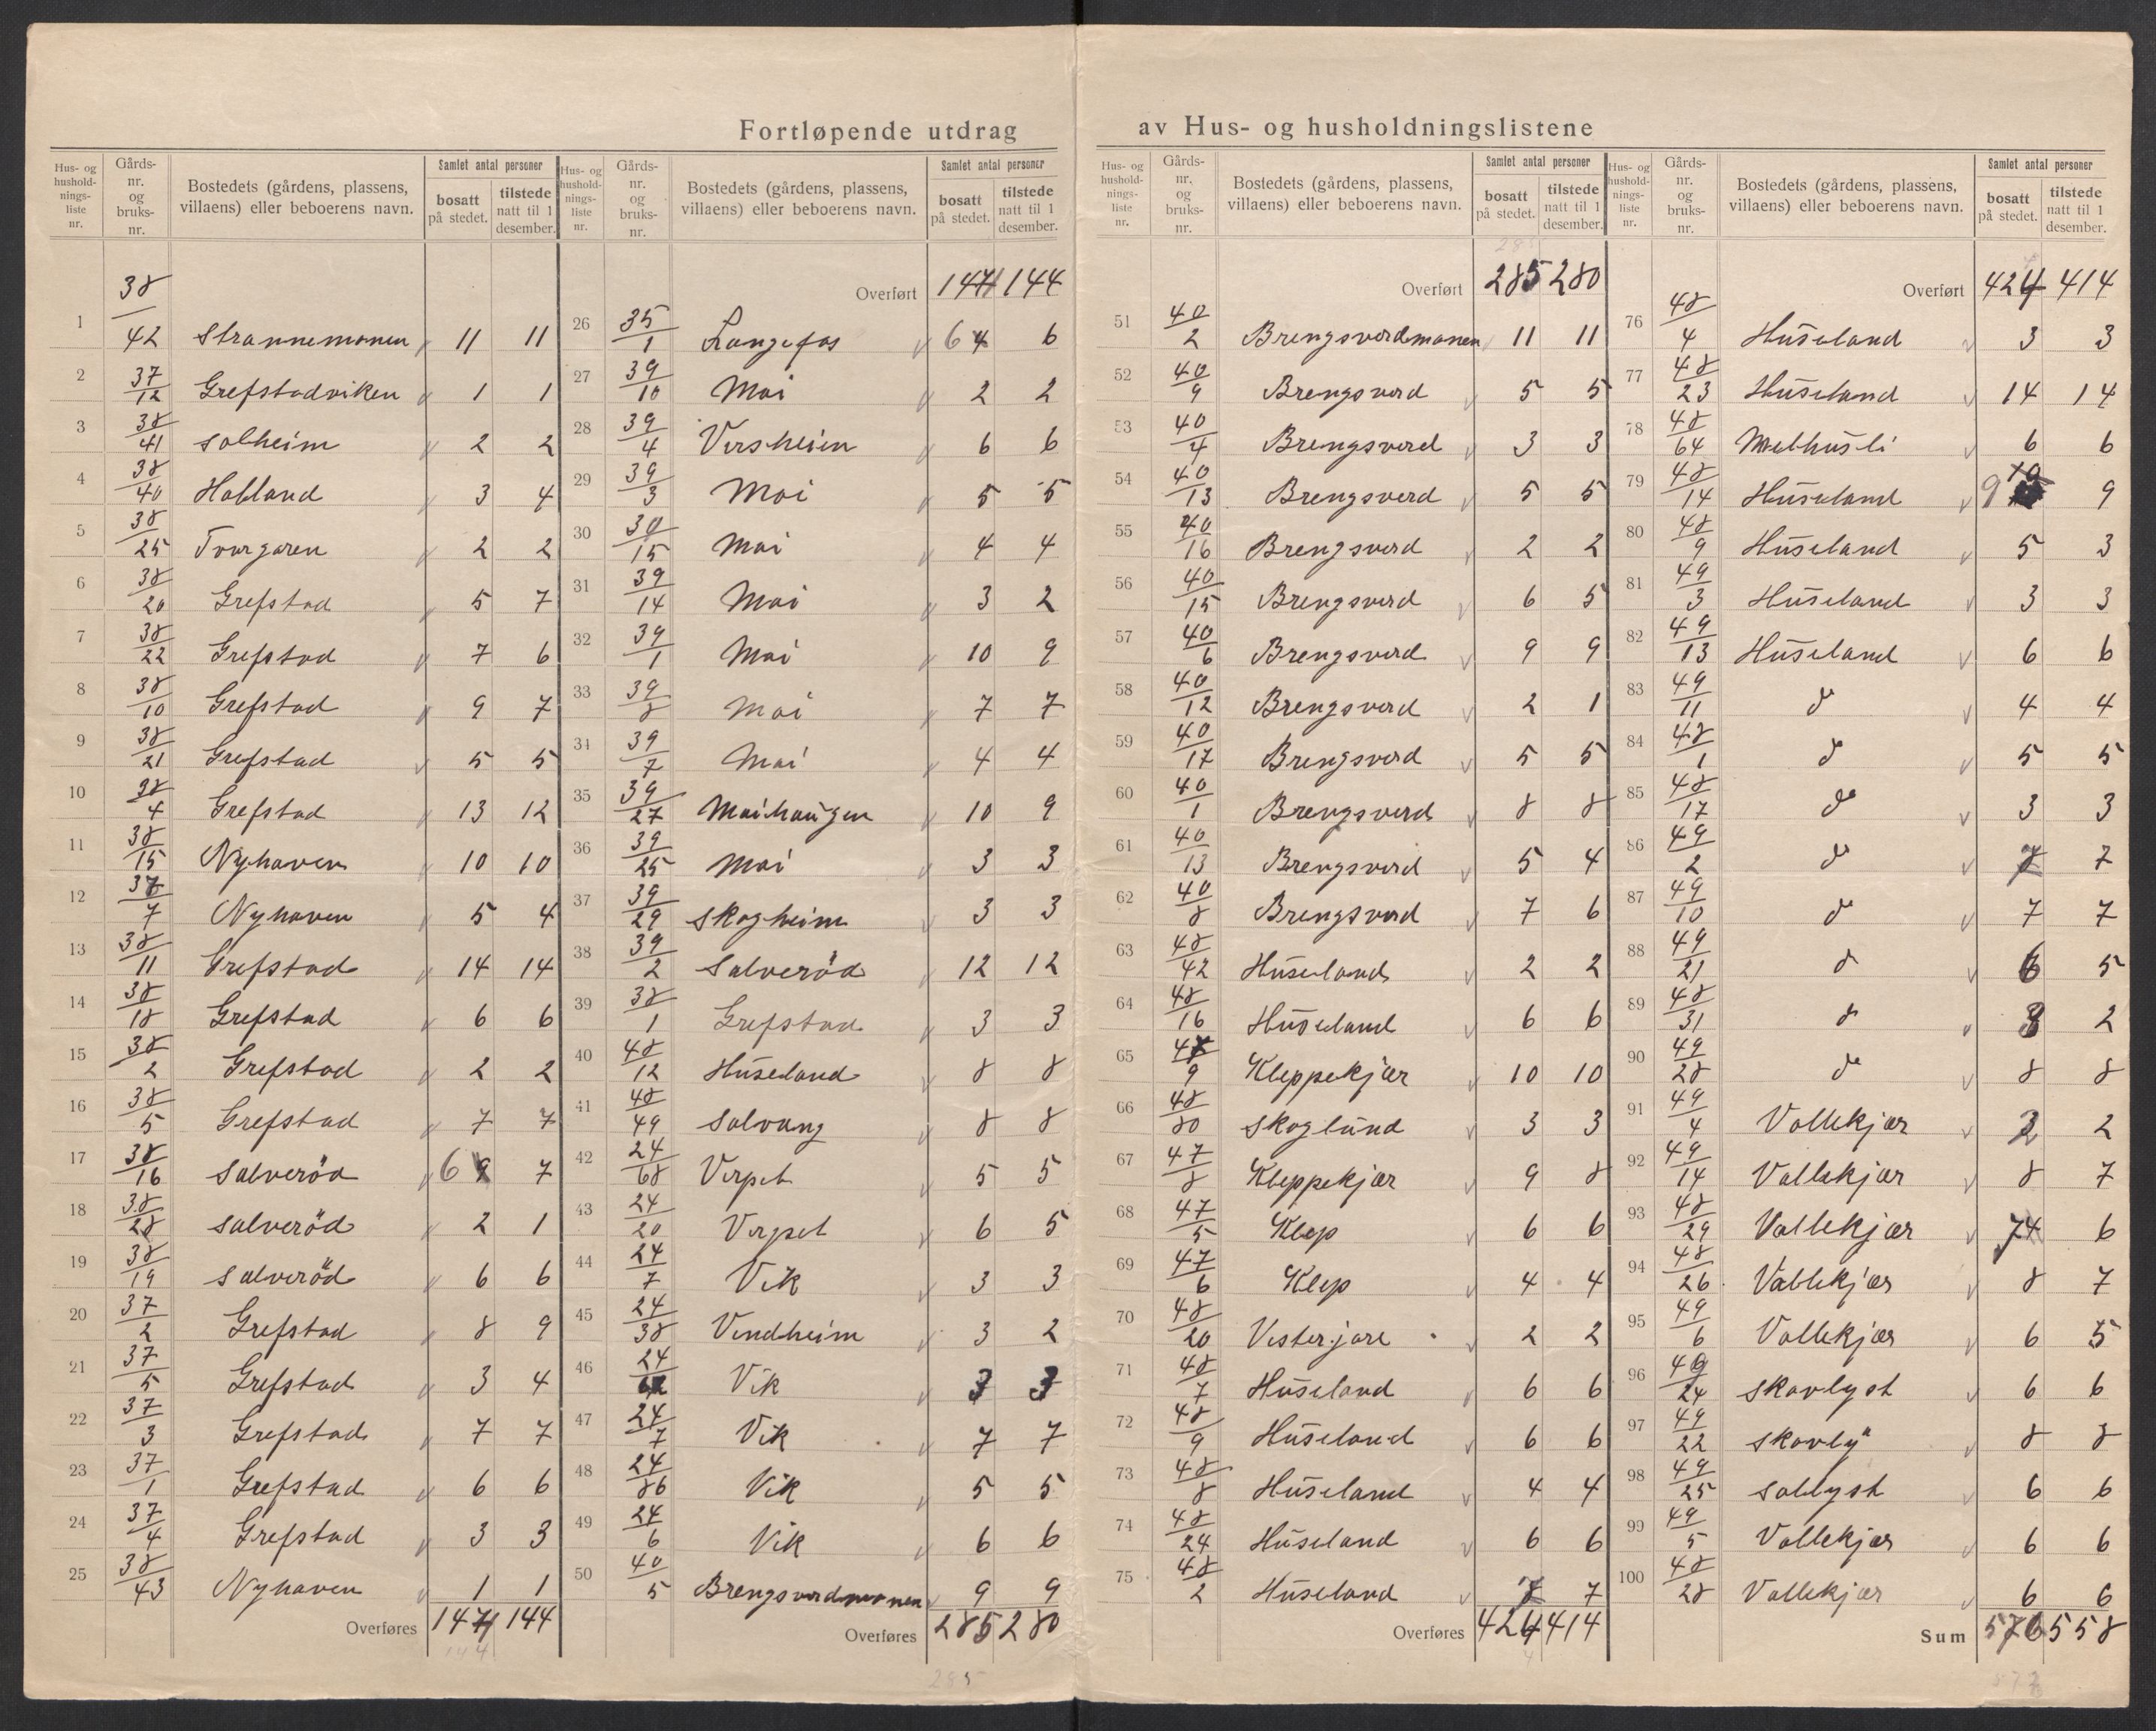 Fortløpende utdrag av Hus- og husholdningslistene
Hus- og hushold- nings- liste nr. | Gårds- nr. og bruks- nr. | Bostedets (gårdens, plassens, villaens) eller beboerens navn. | Samlet antal personer | bosatt på stedet. | tilstede natt til 1 desember.
1 38/42 Strannemonen 11 11
2 37/12 Grefstadviken 1 1
3 38/41 Solheim 2 2
4 38/40 Holland 3 4
5 38/25 Torvgaren 2 2
6 38/20 Grefstad 5 7
7 38/22 Grefstad 7 6
8 38/10 Grefstad 9 7
9 38/21 Grefstad 5 5
10 38/4 Grefstad 13 12
11 38/15 Nyhaven 10 10
12 37/7 Nyhaven 5 4
13 38/11 Grefstad 14 14
14 38/18 Grefstad 6 6
15 38/2 Grefstad 2 2
16 38/5 Grefstad 7 7
17 38/16 Salveröd 6 7
18 38/28 Salveröd 2 1
19 38/19 Salveröd 6 6
20 37/2 Grefstad 8 9
21 37/5 Grefstad 3 4
22 37/3 Grefstad 7 7
23 37/1 Grefstad 6 6
24 37/4 Grefstad 3 3
25 38/43 Nyhaven 1 1
Overføres 147 144
144
Hus- og hushold- nings- liste nr. | Gårds- nr. og bruks- nr. | Bostedets (gårdens, plassens, villaens) eller beboerens navn. | Samlet antal personer | bosatt på stedet. | tilstede natt til 1 desember.
Overført 147 144
26 35/1 Langefos 6 4 6
27 39/10 Moi 2 2
28 39/4 Versheim 6 6
29 39/3 Moi 5 5
30 30/15 Moi 4 4
31 39/14 Moi 3 2
32 39/1 Moi 10 9
33 39/8 Moi 7 7
34 39/7 Moi 4 4
35 39/27 Moihaugen 10 9
36 39/25 Moi 3 3
37 39/29 Skogheim 3 3
38 39/2 Salveröd 12 12
39 38/1 Grefstad 3 3
40 48/12 Huseland 8 8
41 48/49 Solvang 8 8
42 24/68 Verpet 5 5
43 24/20 Verpet 6 5
44 24/7 Vik 3 3
45 24/38 Vendheim 3 2
46 24/ Vik 3 3
47 24/7 Vik 7 7
48 24/86 Vik 5 5
49 24/6 Vik 6 6
50 40/5 Brengsverdmonen 9 9
Overføres 285 280
285
Hus- og hushold- nings- liste nr. | Gårds- nr. og bruks- nr. | Bostedets (gårdens, plassens, villaens) eller beboerens navn. | Samlet antal personer | bosatt på stedet. | tilstede natt til 1 desember.
Overført 285 280
51 40/2 Brengsverdmonen 11 11
52 40/9 Brengsverd 5 5
53 40/4 Brengsverd 3 3
54 40/13 Brengsverd 5 5
55 40/16 Brengsverd 2 2
56 40/15 Brengsverd 6 5
57 40/6 Brengsverd 9 9
58 40/12 Brengsverd 2 1
59 40/17 Brengsverd 5 5
60 40/1 Brengsverd 8 8
61 40/13 Brengsverd 5 4
62 40/8 Brengsverd 7 6
63 48/42 Huseland 2 2
64 48/16 Huseland 6 6
65 47/9 Kleppekjær 10 10
66 48/80 Skoglund 3 3
67 47/8 Kleppekjær 9 8
68 47/5 Klep 6 6
69 47/6 Klep 4 4
70 48/20 Vesterjore 2 2
71 48/7 Huseland 6 6
72 48/9 Huseland 6 6
73 48/8 Huseland 4 4
74 48/24 Huseland 6 6
75 48/2 Huseland 7
Overføres 424 414
Hus- og hushold- nings- liste nr. | Gårds- nr. og bruks- nr. | Bostedets (gårdens, plassens, villaens) eller beboerens navn. | Samlet antal personer | bosatt på stedet. | tilstede natt til 1 desember.
Overført 424 414
76 48/4 Huseland 3 3
77 48/23 Huseland 14 14
78 48/64 Melhusli 6 6
79 48/14 Huseland 9 9
80 48/9 Huseland 5 3
81 49/3 Huseland 3 3
82 49/13 Huseland 6 6
83 49/11 do 4 4
84 48/1 do 5 5
85 48/17 do 3 3
86 49/2 do 7
87 49/10 do 7 7
88 49/21 do 6 5
89 48/31 do 3 2
90 49/28 do 8 8
91 49/4 Vollekjær 2 2
92 49/14 Vollekjær 8 7
93 48/29 Vollekjær 7 6
94 48/26 Vollekjær 8 7
95 49/6 Vollekjær 6 5
96 49/24 Skovlyst 6 6
97 49/22 Skovly 8 8
98 49/25 Sollyst 6 6
99 49/5 Vollekjær 6 6
100 48/28 Vollekjær 6 6
Sum 576 558